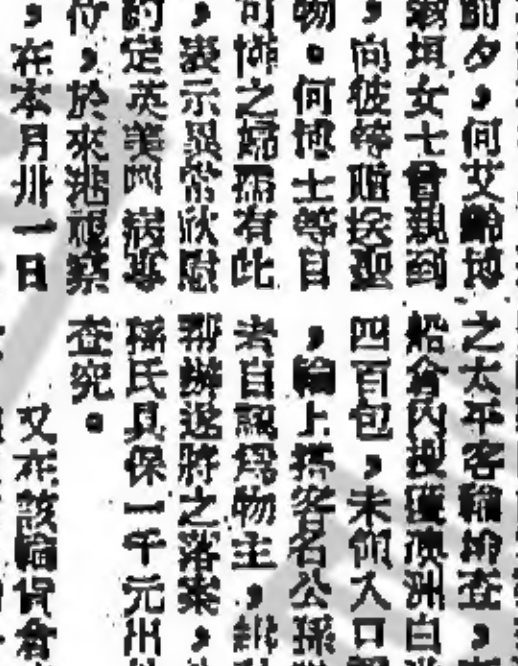 前夕,何艾齡博
淑垣女士曾親到
,向彼等贈送聖
物。何博士等目
可憐之婦孺有此
,表示異常欣慰
的定英美病專
,於來港視察
,在本月卅一日
之太平客輪搜查,
船倉內搜獲澳洲白
四百包,未領入口
,輪上搭客名公孫
者自認爲物主,
幫辦遂將之落案,
孫氏具保一千元
查究。
又在該輪貨倉